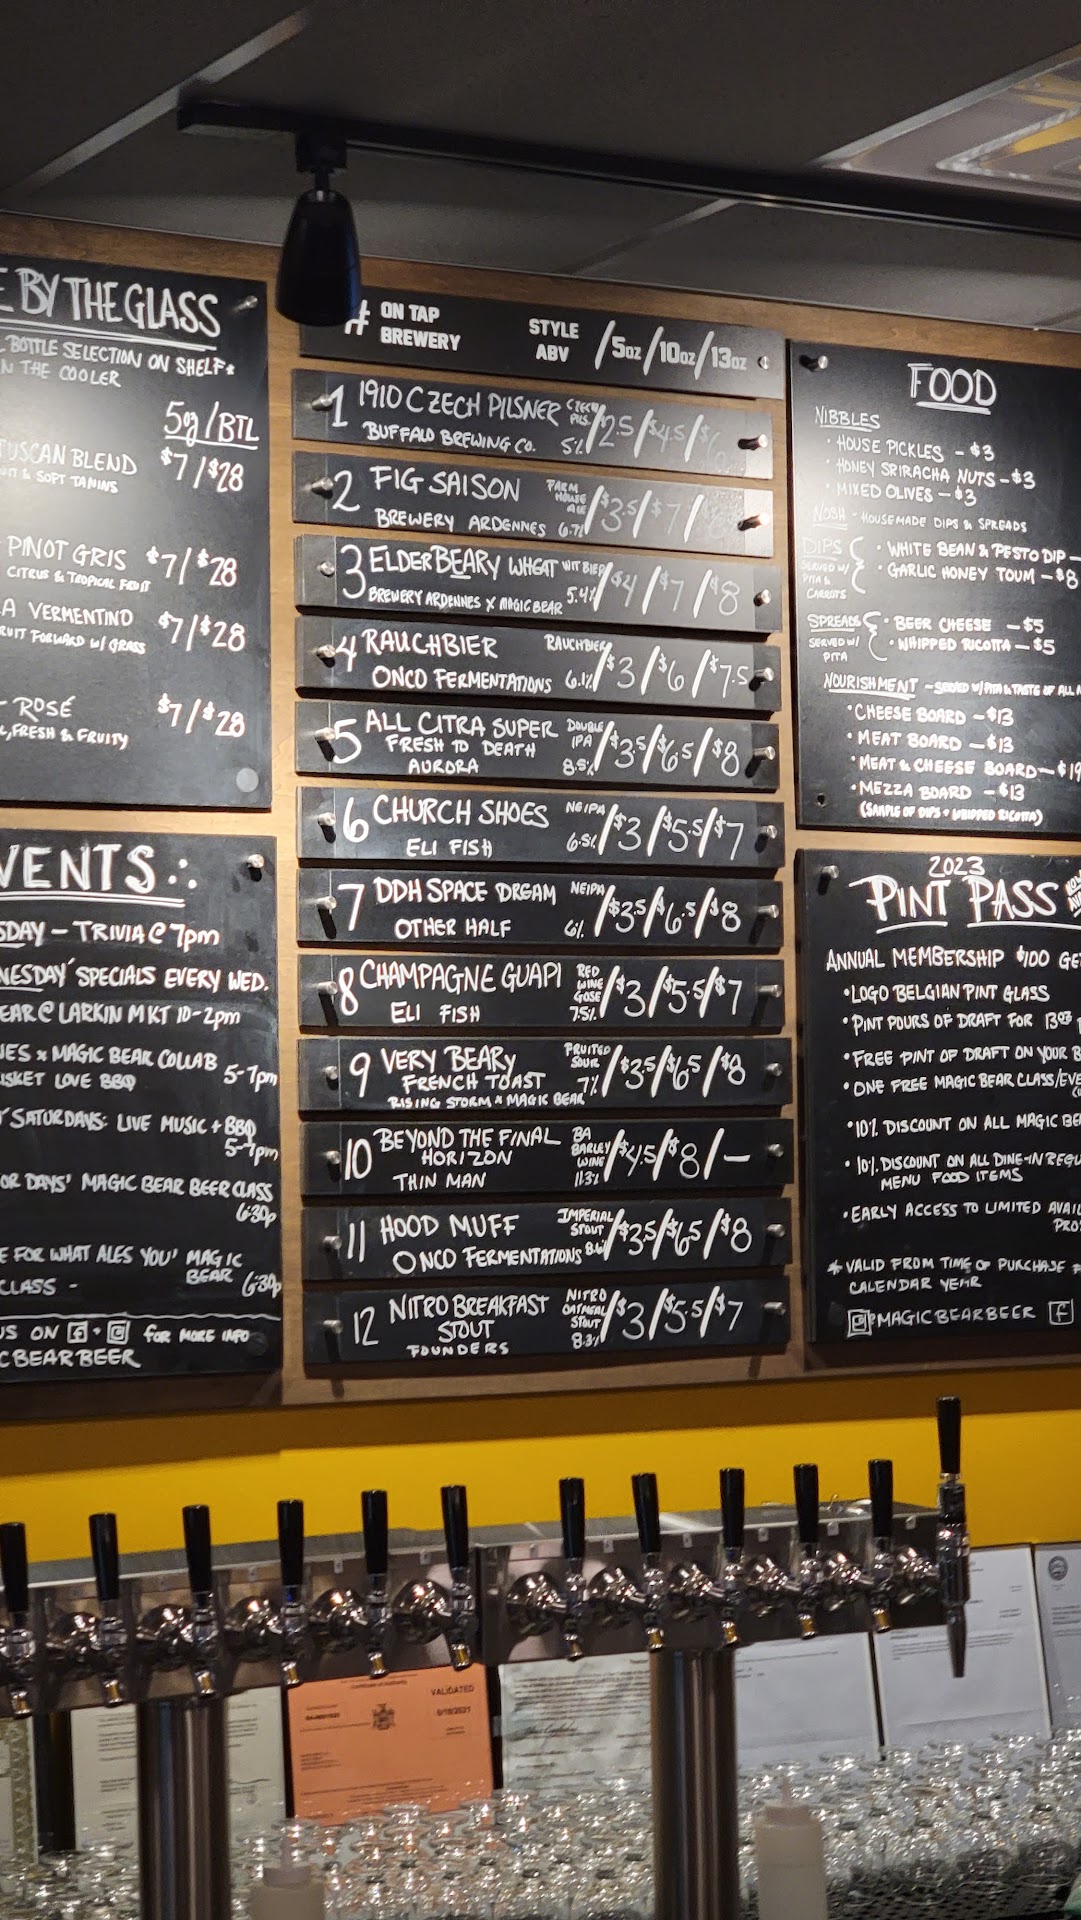 E BY THE GLASS
BOTTLE SELECTION ON SHELF*
N THE COOLER
5oz/BTL
TUSCAN BLEND $7/$28
& SOFT TANINS
PINOT GRIS $7/$28
CITRUS & TROPICAL FRUIT
A VERMENTINO $7/$28
RUIT FORWARD W/ GRASS
ROSÉ $7/$28
, FRESH & FRUITY
VENTS
SDAY - TRIVIA @ 7pm
NESDAY' SPECIALS EVERY WED.
EAR @ LARKIN MKT 10-2pm
NES x MAGIC BEAR COLLAB 5-7pm
ISKET LOVE BBQ
SATURDAYS: LIVE MUSIC + BBQ
5-7pm
OR DAYS' MAGIC BEAR BEER CLASS
6:30p
E FOR WHAT ALES YOU' MAGIC
CLASS - BEAR 6:30p
US ON f + FOR MORE INFO
C BEAR BEER
# ON TAP STYLE /5oz/10oz/13oz
BREWERY ABV
1 1910 CZECH PILSNER CZECH PILS /$2.5/$4.5/$6
BUFFALO BREWING CO. 5%
2 FIG SAISON FARM HOUSE ALE /$3.5/$7/
BREWERY ARDENNES 6.7%
3 ELDERBEARY WHEAT WITBIER /$4/$7/$8
BREWERY ARDENNES X MAGIC BEAR 5.4%
4 RAUCHBIER RAUCHBIER /$3/$6/$7.5
ONCO FERMENTATIONS 6.1%
5 ALL CITRA SUPER DOUBLE IPA /$3.5/$6.5/$8
FRESH TO DEATH
AURORA 8.5%
6 CHURCH SHOES NEIPA /$3/$5.5/$7
ELI FISH 6.5%
7 DDH SPACE DREAM NEIPA /$3.5/$6.5/$8
OTHER HALF 6%
8 CHAMPAGNE GUAPI RED WINE GOSE /$3/$5.5/$7
ELI FISH 7.5%
9 VERY BEARY FRUITED SOUR /$3.5/$6.5/$8
FRENCH TOAST 7%
RISING STORM x MAGIC BEAR
10 BEYOND THE FINAL BA BARLEY WINE /$4.5/$8/-
HORIZON
THIN MAN 11.3%
11 HOOD MUFF IMPERIAL STOUT /$3.5/$6.5/$8
ONCO FERMENTATIONS 8.6%
12 NITRO BREAKFAST NITRO OATMEAL STOUT /$3/$5.5/$7
STOUT
FOUNDERS 8.3%
FOOD
NIBBLES
• HOUSE PICKLES - $3
• HONEY SRIRACHA NUTS - $3
• MIXED OLIVES - $3
NOSH - HOUSEMADE DIPS & SPREADS
DIPS • WHITE BEAN & PESTO DIP -
SERVED W/ PITA & CARROTS • GARLIC HONEY TOUM - $8
SPREADS • BEER CHEESE - $5
SERVED W/ PITA • WHIPPED RICOTTA - $5
NOURISHMENT - SERVED W/ PITA & TASTE OF ALL
• CHEESE BOARD - $13
• MEAT BOARD - $13
• MEAT & CHEESE BOARD - $19
• MEZZA BOARD - $13
(SAMPLE OF DIPS + WHIPPED RICOTTA)
2023
PINT PASS
ANNUAL MEMBERSHIP $100 GE
• LOGO BELGIAN PINT GLASS
• PINT POURS OF DRAFT FOR 13oz
• FREE PINT OF DRAFT ON YOUR B
• ONE FREE MAGIC BEAR CLASS/EVE
• 10% DISCOUNT ON ALL MAGIC BE
• 10% DISCOUNT ON ALL DINE-IN REGU
MENU FOOD ITEMS
• EARLY ACCESS TO LIMITED AVAIL
PRO
* VALID FROM TIME OF PURCHASE
CALENDAR YEAR
@MAGICBEARBEER f
Certificate of Authority
VALIDATED